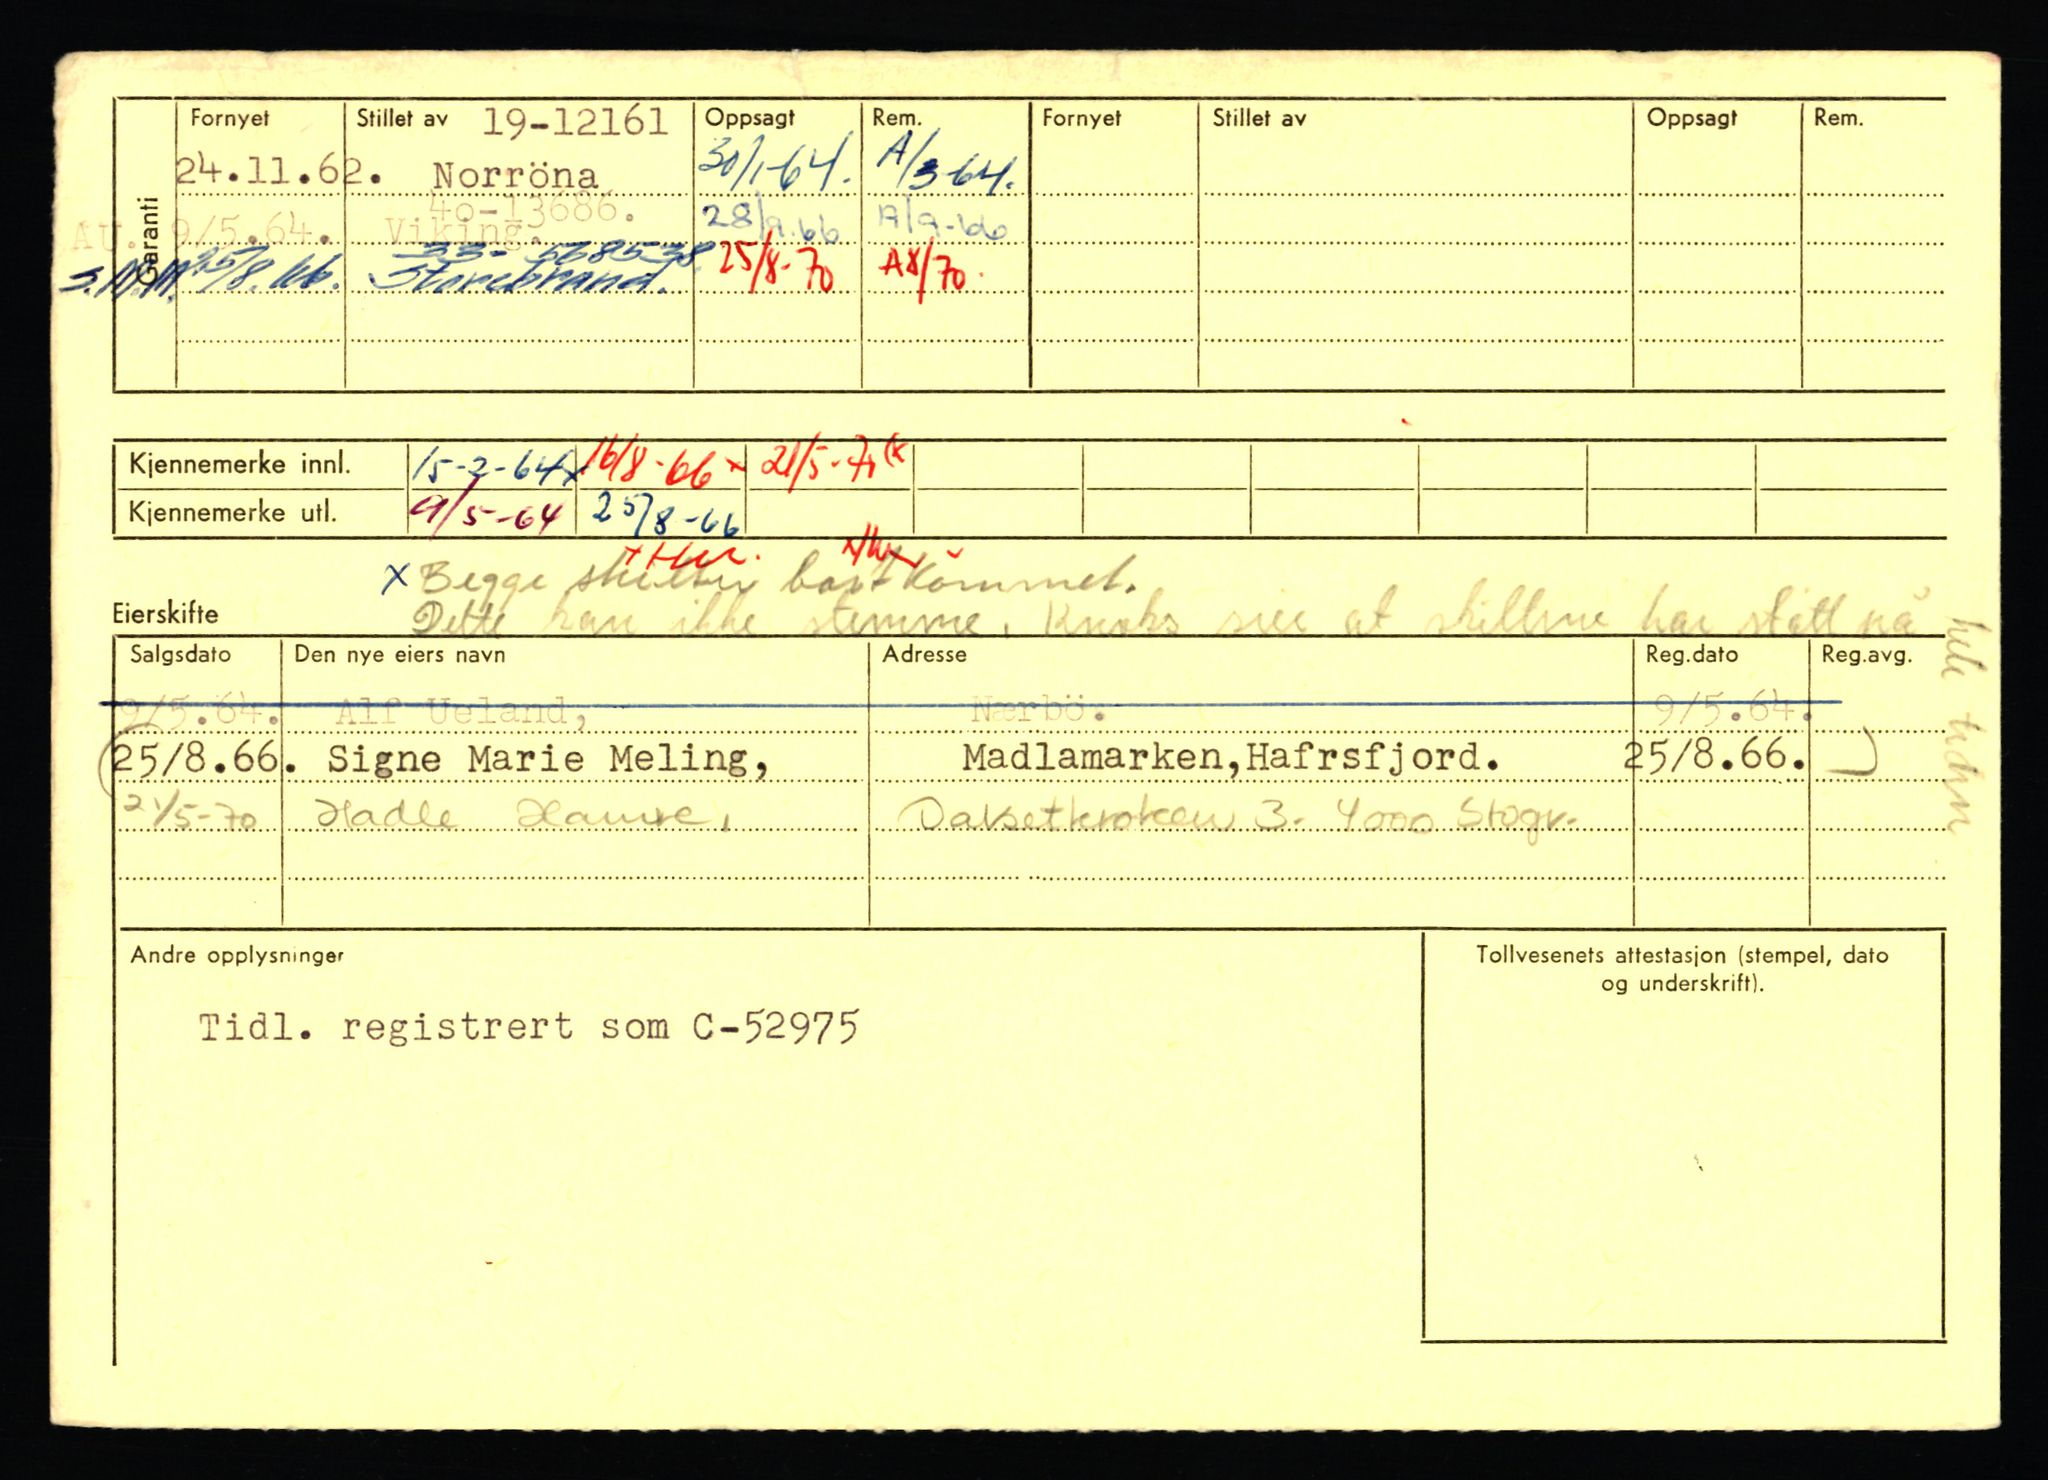 Garanti
Fornyet Stillet av 19-12161 Oppsagt Rem. Fornyet Stillet av Oppsagt Rem.
24.11.62. Norröna 30/1-64. A/3-64.
40-13686.
AU. 9/5.64. Viking. 28/9.66 A/9-66
33-568538.
S.M.M. 25/8.66. Storebrand. 25/8-70 A8/70.
Kjennemerke innl. 15-2-64x 16/8-66 x 21/5-70
Kjennemerke utl. 9/5-64 25/8-66
x Begge skilter bortkommet.
Eierskifte Dette kan ikke stemme. sier at skiltene har stått på hele tiden
Salgsdato Den nye eiers navn Adresse Reg.dato Reg.avg.
9/5.64. Alf Ueland, Nærbö. 9/5.64.
25/8.66. Signe Marie Meling, Madlamarken,Hafrsfjord. 25/8.66.
21/5-70 Hadle 3. 4000 Stvgr.
Andre opplysninger
Tollvesenets attestasjon (stempel, dato
og underskrift).
Tidl. registrert som C-52975